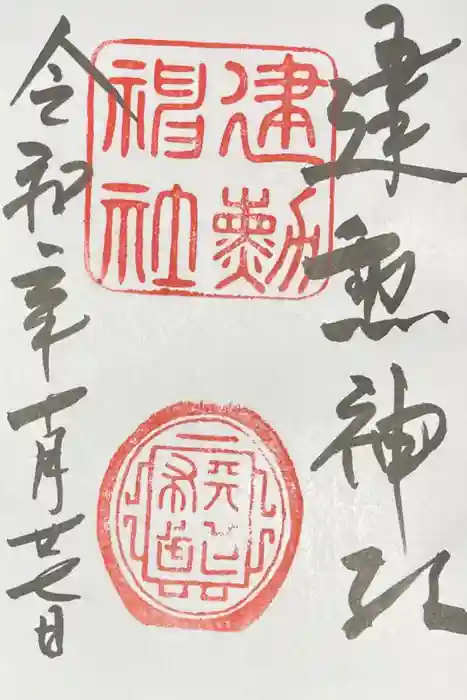 建勲神社
建勲
神社
令和六年十一月廿七日